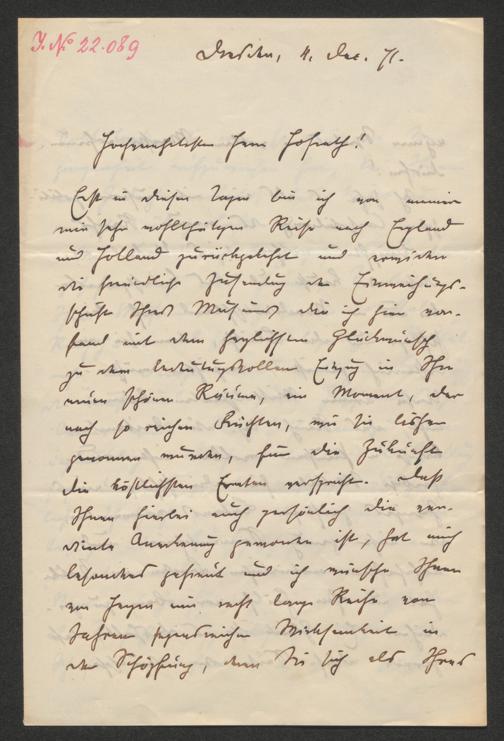 J. № 22.089
Dresden, 4. Dec. 71.
Hochverehrtester Herr Hofrath!
Erst in diesen Tagen bin ich von meiner
mir sehr wohlthätigen Reise nach England
und Holland zurückgekehrt und erwidere
die freundliche Zusendung der Einweihungs-
schrift Ihres Museums die ich hier vor-
fand mit dem herzlichsten Glückwunsch
zu dem bedeutungsvollen Einzug in Ihre
neuen schönen Räume, ein Moment, der
nach so reichen Früchten, wie sie bisher
gewonnen wurden, für die Zukunft
die köstlichsten Ernten verspricht. Daß
Ihnen hierbei auch persönlich die ver-
diente Anerkennung geworden ist, hat mich
besonders gefreut und ich wünsche Ihnen
von Herzen eine recht lange Reihe von
Jahren segensreicher Wirksamkeit in
der Schöpfung, denn Sie sich als Ihres